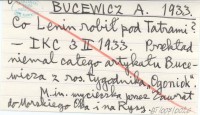 BUCEWICZ A. 1933.
Co Lenin robił pod Tatrami?
— IKC 3 II 1933. Przekład
niemal całego artykułu Buce-
wicza z ros. tygodnika „Ogoniok".
M. in. wycieczka przez Zawrat
do Morskiego Oka i na Rysy.